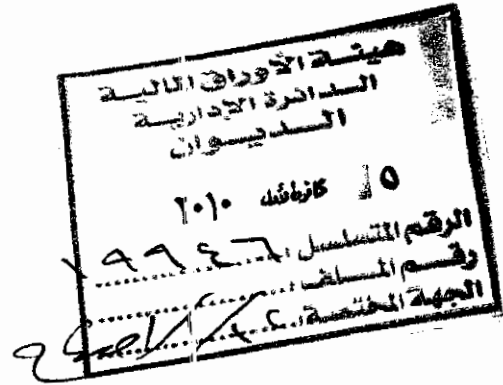 هيئة الأوراق المالية
الدائرة الإدارية
الديوان
١٥ كانون أول ٢٠١٠
الرقم المتسلسل: ١٩٩٤٦
رقم الملف:
الجهة المختصة: